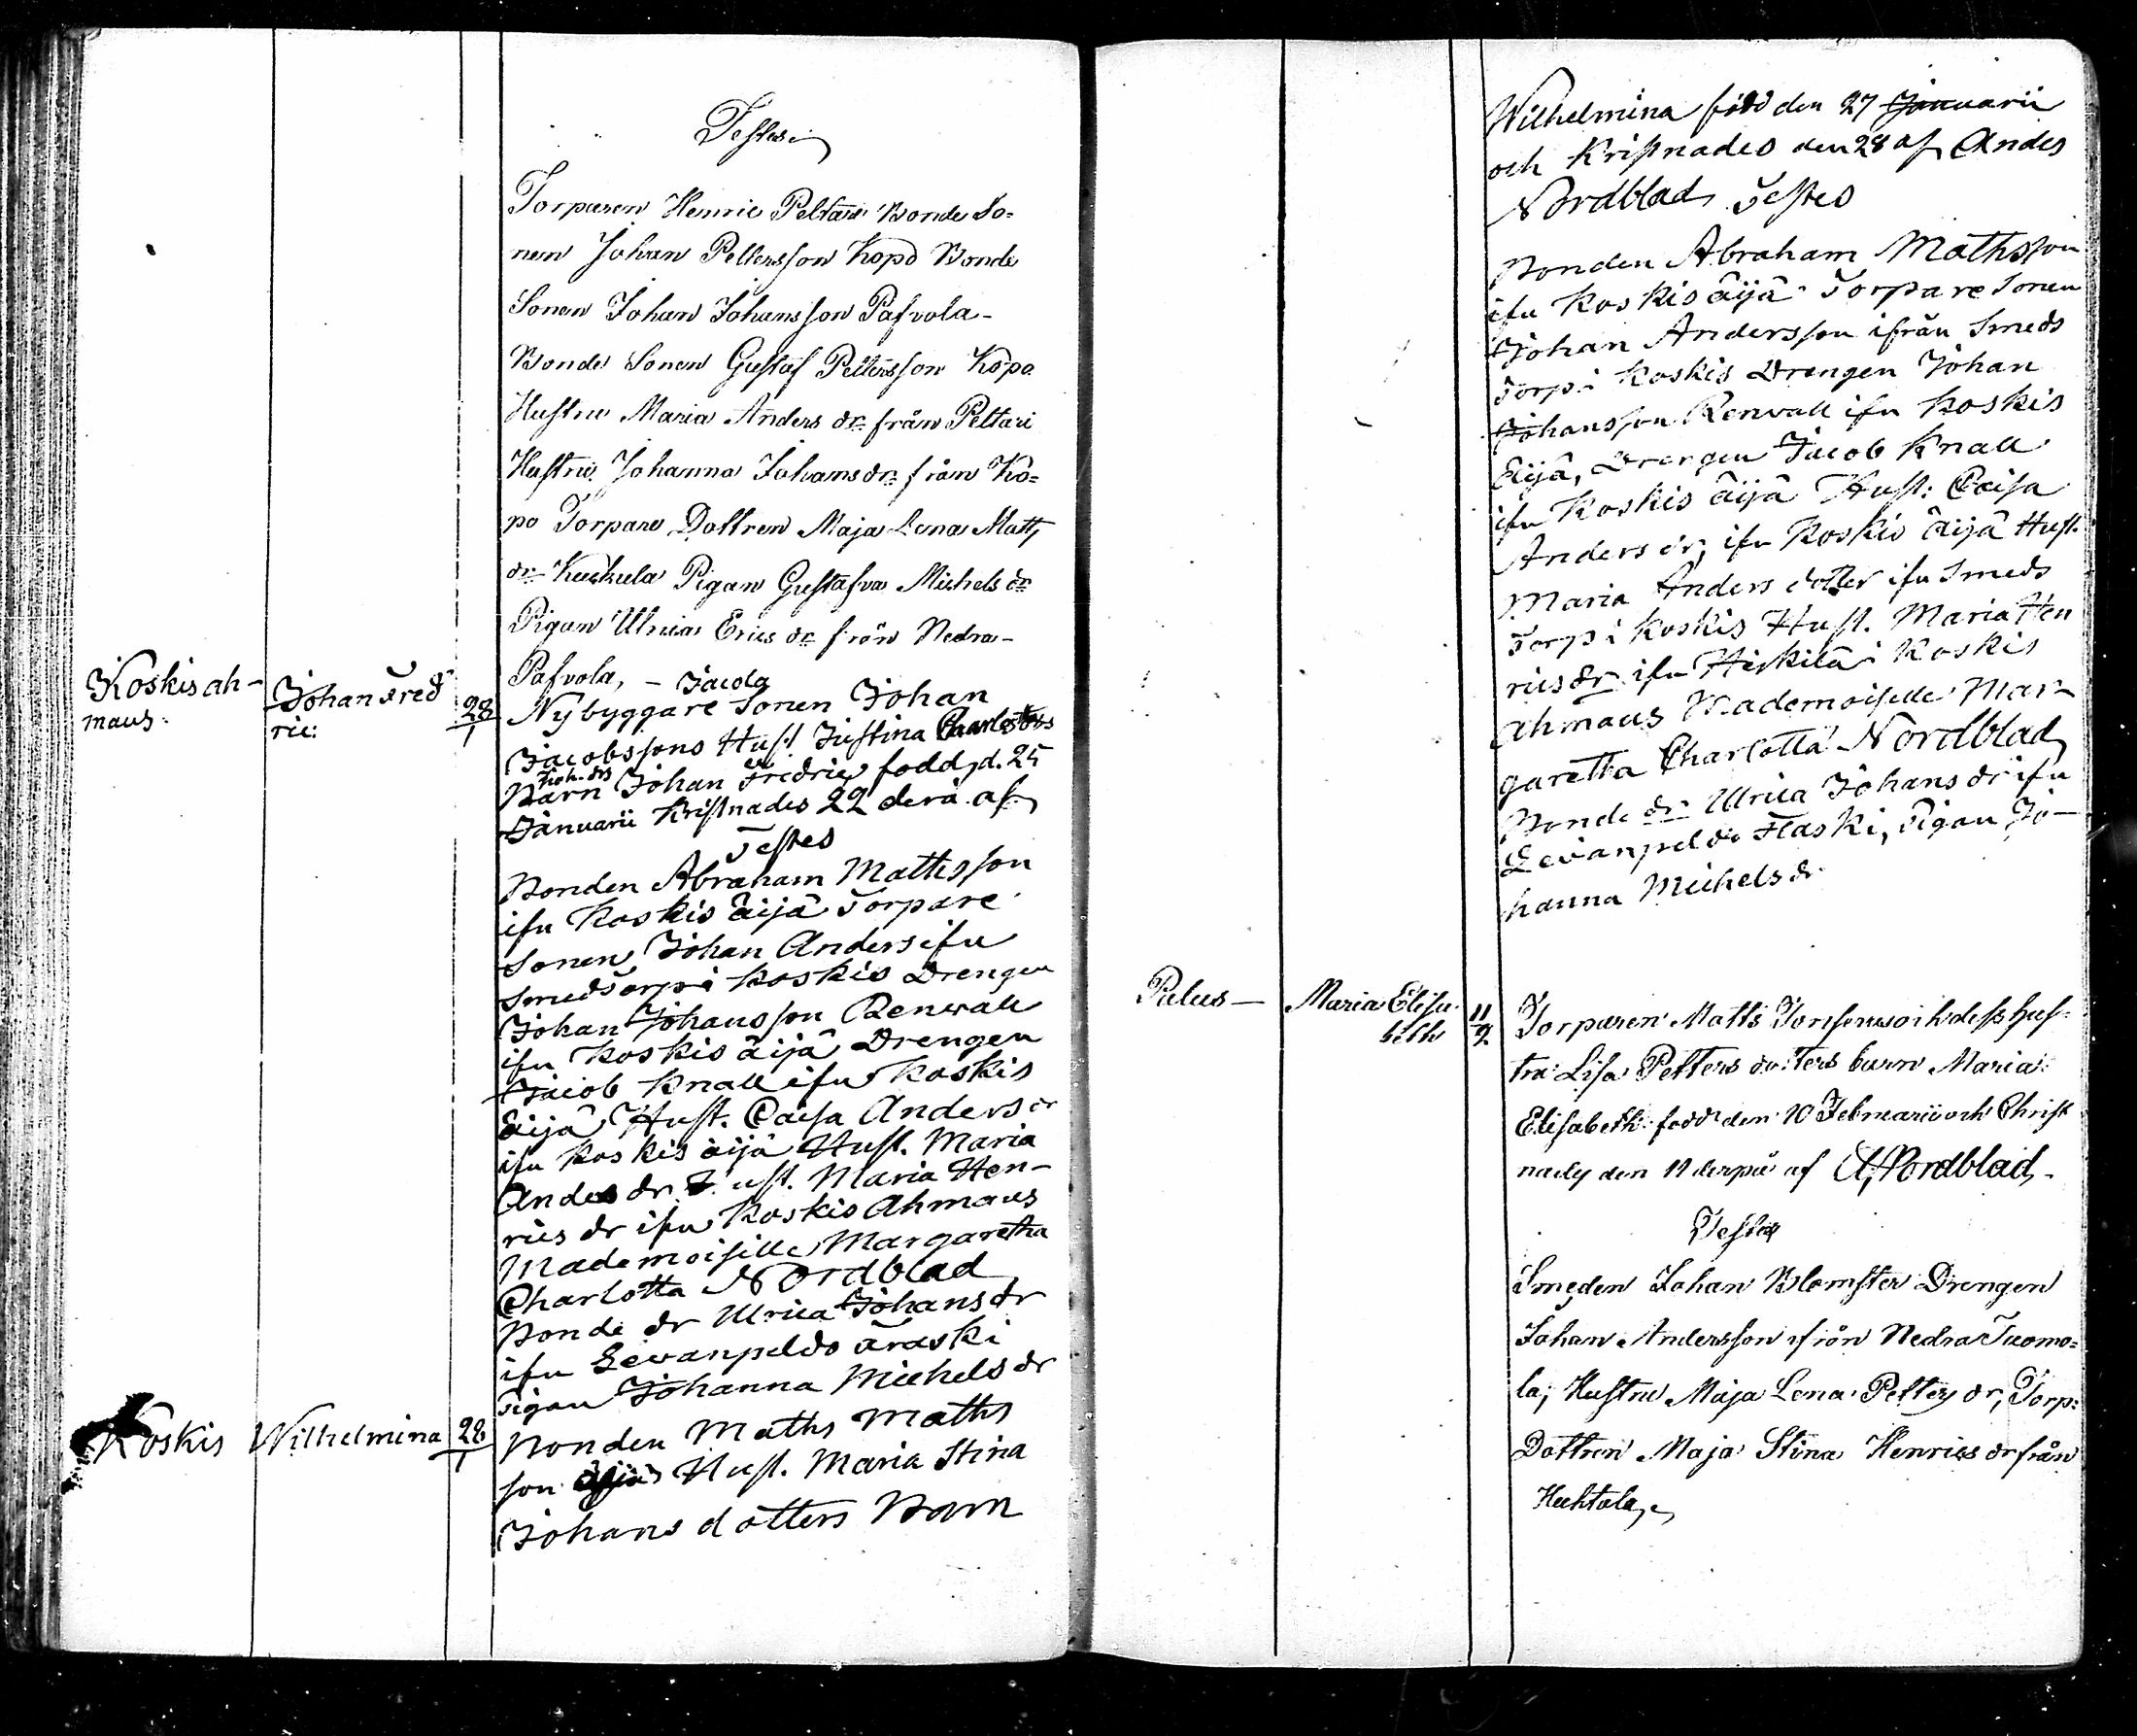 Testes
Torparen Henric Peltari Bonde So=
nen Johan Pettersson Kopo Bonde
Sonen Johan Johansson Pafvola-
Bonde Sonen Gustaf Pettersson Kopo
Hustru Maria Anders dr från Peltari
Hustru Johanna Johans dr från Ko=
po Torpare Dottren Maja Lena Matts
dr Kuckula Pigan Gustafva Michels dr
Pigan Ulrica Erics dr från Nedra-
Pafvola, -
Koskis ah-
maus
Johan Fred
ric
28/1
Nybyggare Sonen Johan
Jacobssons Hust Justina
Joh. drs
Barn Johan Fredric född d. 25
Januarii Kristnades 22 dera af
Testes
Bonden Abraham Mattsson
ifn Koskis äijä Torpare
Sonen Johan Anders ifn
Smeds torp i Koskis Drengen
Johan Johansson Renvall
ifn Koskis äijä Drengen
Jacob Knall ifn Koskis
äijä Hust. Caisa Anders dr
ifn Koskis äijä Hust. Maria
Andes dr Hust. Maria Hen-
rics dr ifn Koskis Ahmaus
Mademoiselle Margaretha
Charlotta Nordblad
Bonde dr Ulrica Johans dr
ifn Levanpeldo
Pigan Johanna Michels dr
Koskis
Wilhelmina
28/1
Bonden Maths Maths
son äijä Hust. Maria Stina
Johans dotters Barn
Wilhelmina född den 27 Januarii
och Kristnades den 28 af Andes
Nordblad Testes
Bonden Abraham Mathsson
ifn Koskis äijä Torpare Sonen
Johan Andersson ifrån Smeds
Torp i Koskis Drengen Johan
Johansson Renvall ifn Koskis
äijä, Drengen Jacob Knall
ifn Koskis äijä Hust: Caisa
Anders dr, ifn Koskis äijä Hust.
Maria Anders dotter ifn Smeds
Torp i Koskis Hust. Maria Hen
rics dr ifn Heikilä i Koskis
ahmaus Mademoiselle Mar-
garetta Charlotta Nordblad
Bonde dr Ulrica Johans dr ifn
Levanpeldo Pigan Jo-
hanna Michels dr
Palus-
Maria Elisa
beth
11/2
Torparen Matts och dess Hus-
tru Lisa Petters dotters barn Maria
Elisabeth född den 10 Februarii och Christ
nades den 11 derpå af A, Nordblad-
Testes
Smeden Johan Blomster Drengen
Johan Andersson ifrån Nedra Tuomo=
la, Hustru Maja Lena Petters dr, Torp:
Dottren Maja Stina Henrics dr från
Huhtala,